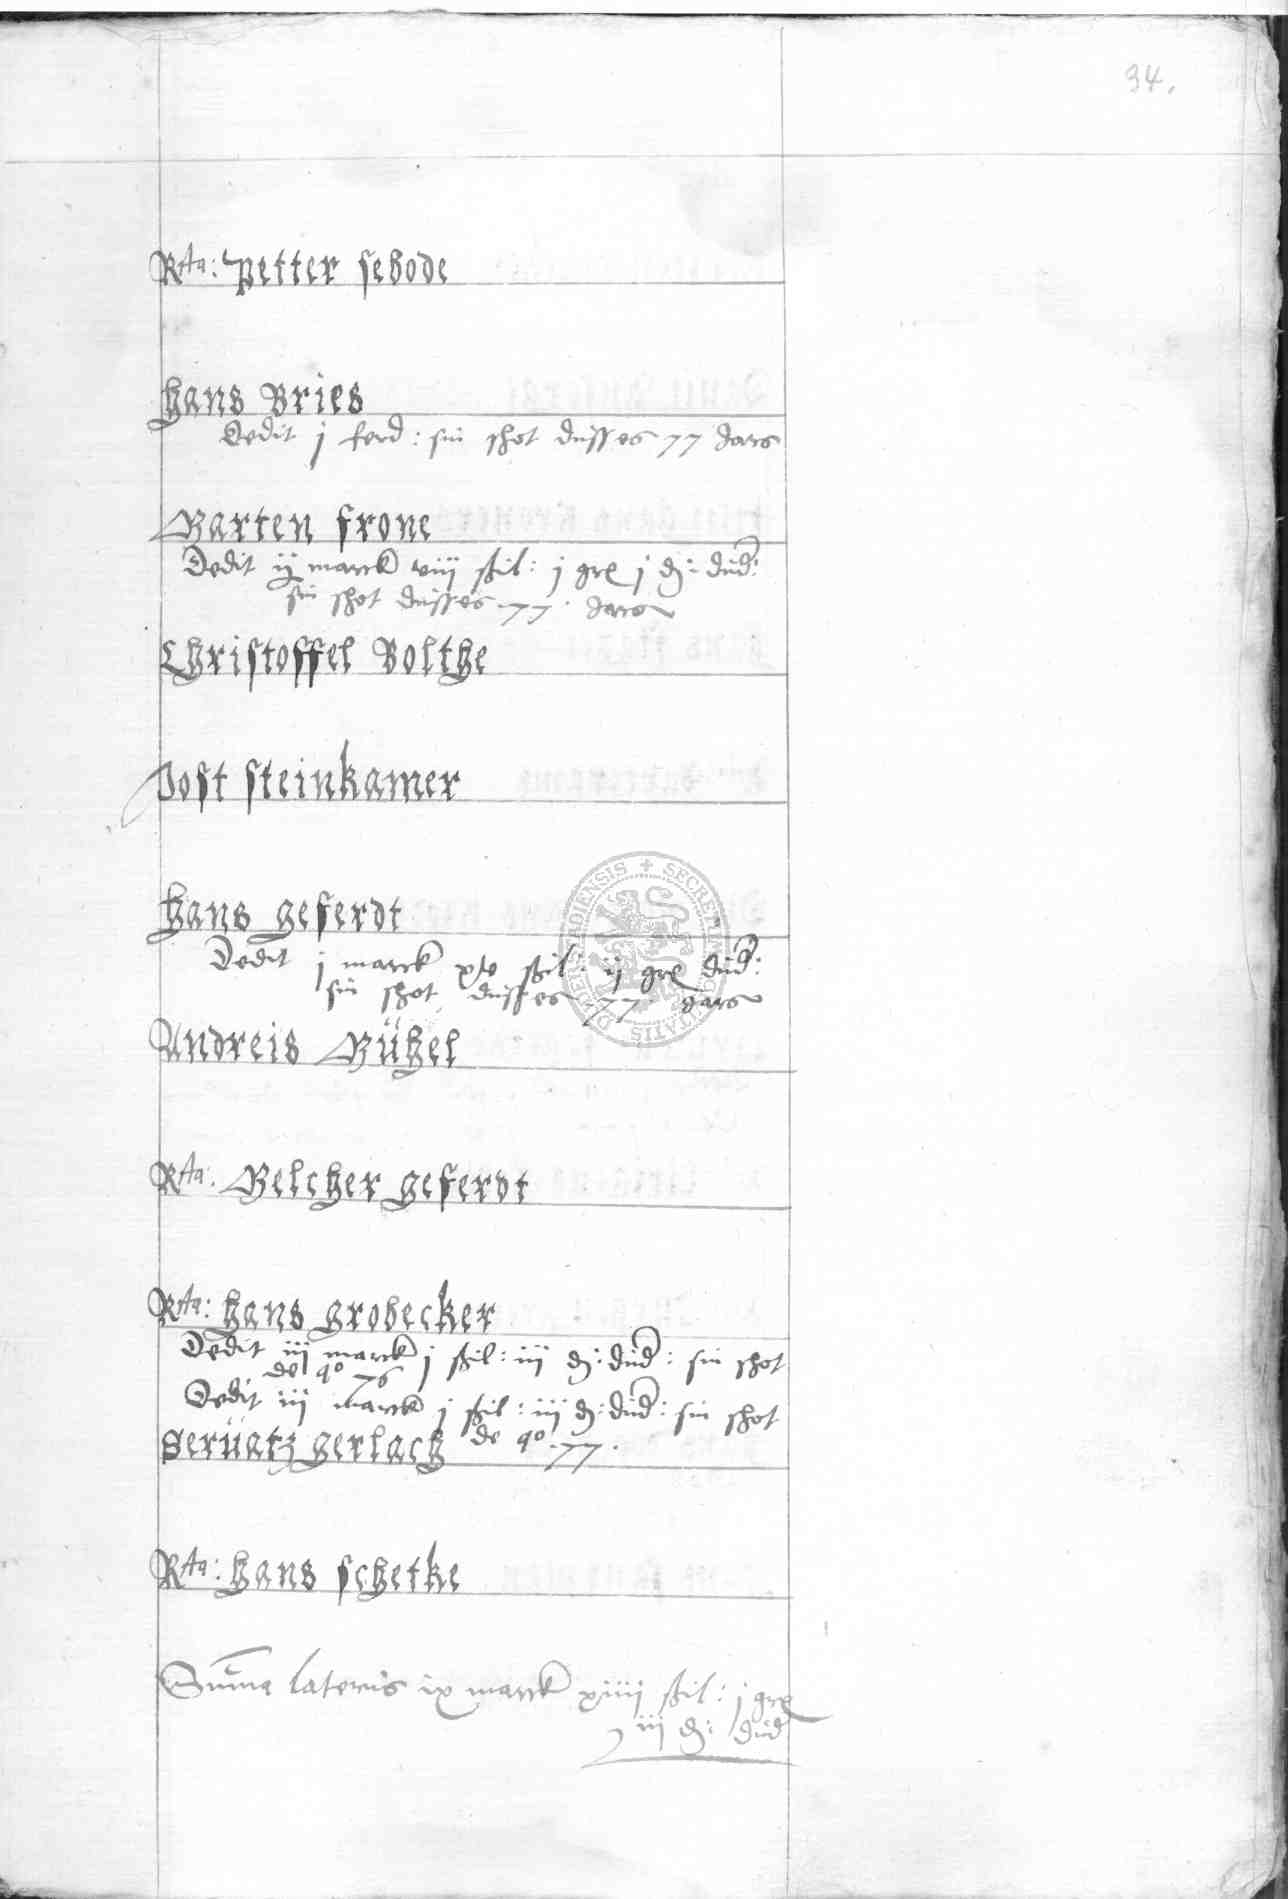 34.
Rta: Petter sebode
Hans Bries
Dedit j ferd: sin schot dusses 77 Jars
Marten frone
Dedit ij marck viij ßil: j gre j d: dud:
sin schot dusses 77. Jars
Christoffel Bolthe
Jost steinkamer
Hans geferdt
Dedit j marck ßil: ij gre dud:
sin schot dusses 77 Jars
Andreis Mühel
Rta: Melcher geferdt
Rta: Hans grobecker
Dedit iij marck j ßil: iij d: dud: sin schot
de qo 76
Dedit iij marck j ßil: iij d: dud: sin schot
de qo 77.
Seruatz gerlach
Rta: Hans schetke
Suma lateris ix marck xiiij ßil: j gre
iij d: dud
SECRETUM CIVITATIS DUDERSTADIENSIS